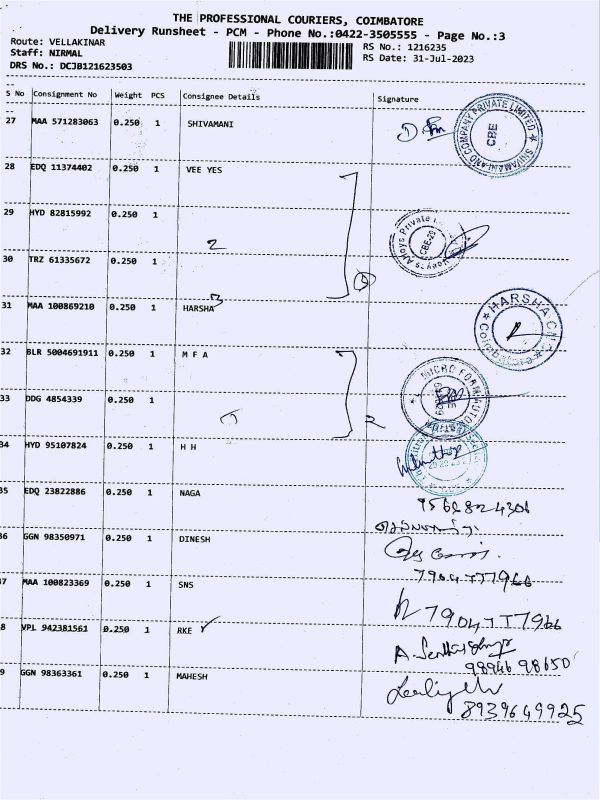 THE PROFESSIONAL COURIERS, COIMBATORE
Delivery Runsheet - PCM - Phone No.:0422-3505555 - Page No.:3
Route: VELLAKINAR
RS No.: 1216235
Staff: NIRMAL
RS Date: 31-Jul-2023
DRS No.: DCJB121623503
S No Consignment No Weight PCS Consignee Details Signature
27 MAA 571283063 0.250 1 SHIVAMANI
SHIVAMANI AND COMPANY PRIVATE LIMITED
CBE
28 EDQ 11374402 0.250 1 VEE YES
29 HYD 82815992 0.250 1
2
Alloys Private
30 TRZ 61335672 0.250 1
3
31 MAA 100869210 0.250 1 HARSHA
HARSHA CNC
Coimbatore
32 BLR 5004691911 1 M F A
MICRO FORM AUTOMATION
33 DDG 4854339 0.250 1
2
34 HYD 95107824 0.250 1 H H
35 EDQ 23822886 0.250 1 NAGA
36 GGN 98350971 0.250 1 DINESH
7904777966
37 MAA 100823369 0.250 1 SNS
7904777966
8 VPL 942381561 0.250 1 RKE
98946 98650
9 GGN 98363361 0.250 1 MAHESH
8939649925